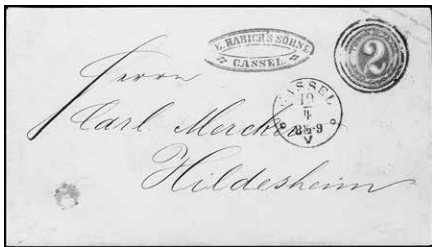 E. HABICH'S SÖHNE
CASSEL.
2
CASSEL
10
4
8½-9
V
Herrn
Carl Mercker
Hildesheim